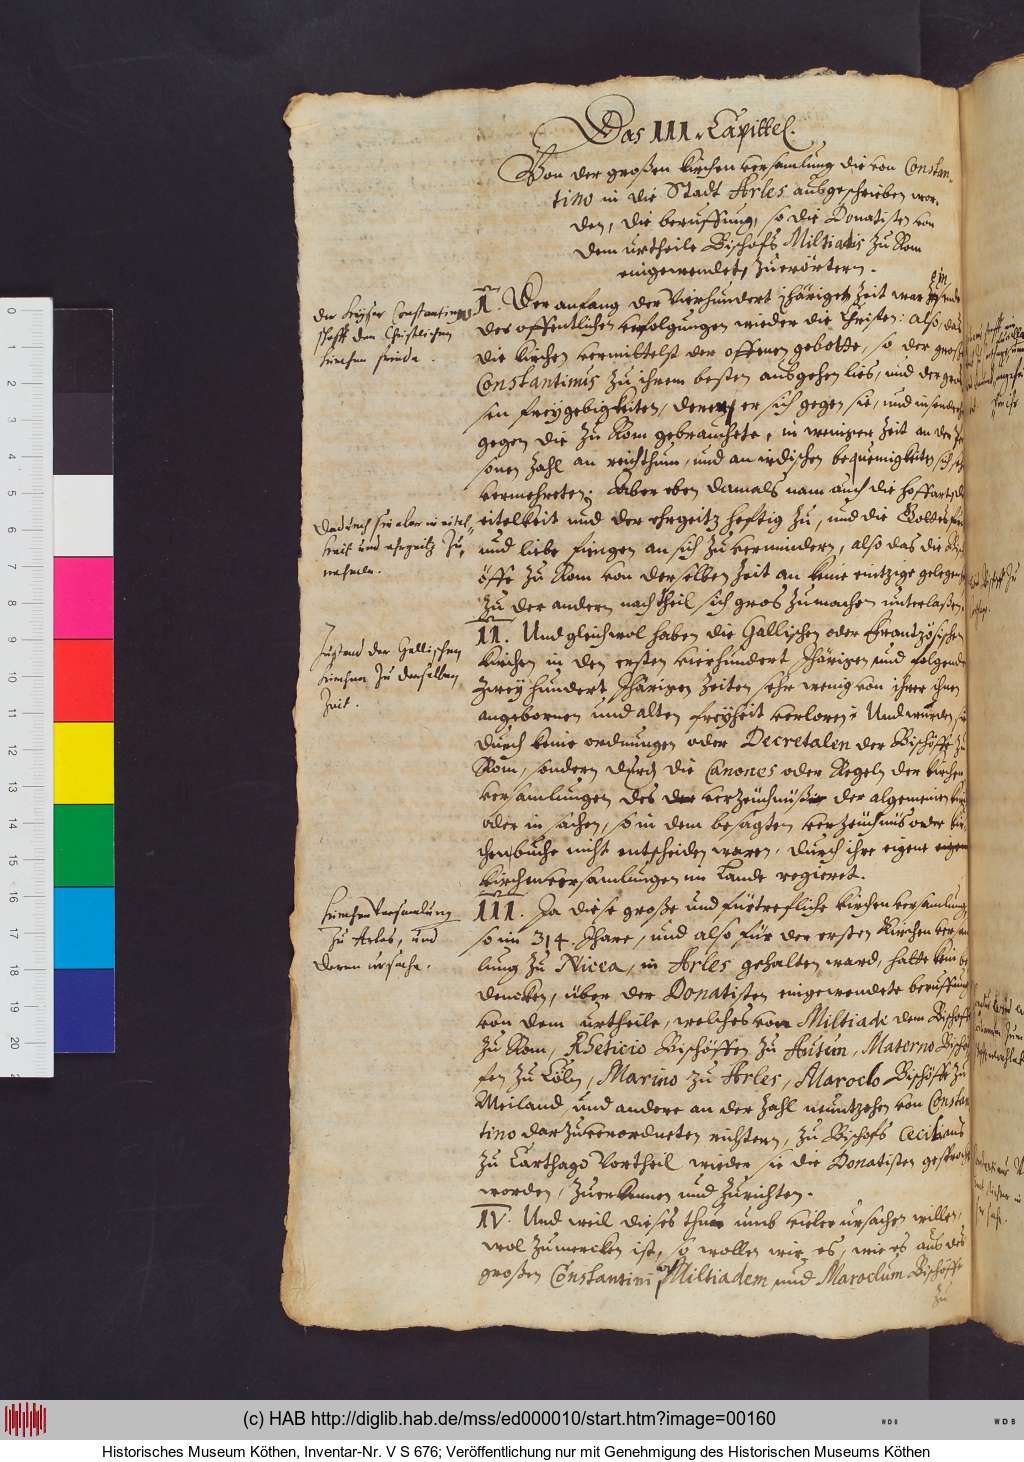 Das III. Capittel.
Von der großen Kirchen versamlung die von Constan-
tino in die Stadt Arles außgeschrieben wor-
den, die beruffung, so die Donatisten von
dem urtheile Bischofs Miltiadis zu Rom
eingewendet, zuerörtern.
der Keyser Constantinus
schafft den Christlichen
kirchen friede.
I. Der anfang der Vierhundert Jhärigen Zeit war ein ende
der offentlichen verfolgungen wieder die Christen: also, das
die kirchen vermittelst der offenen gebotte, so der große
Constantinus zu ihrem besten ausgehen lies, und der
sen freygebigkeiten, deren er sich gegen sie, und
gegen die zu Rom gebrauchete, in weniger Zeit an der
sonen Zahl an reichthum, und an irdischen bequemigkeiten sich
vermehreten: Aber eben damals nam auch die
Dadurch sie aber in eitel-
keit und ehrgeitz zu-
nehmen.
eitelkeit und der ehrgeitz heftig zu, und die
und liebe fiengen an sich zu vermindern, also das die
öffe zu Rom von derselben Zeit an keine eintzige
zu der andern nachtheil sich gros zumachen unterlaßen.
Zustand der Gallischen
kirchen zu derselben
Zeit.
II. Und gleichwol haben die Gallischen oder Frantzösischen
kirchen in den ersten vierhundert Jhärigen und folgende
zwey hundert Jhärigen Zeiten sehr wenig von ihrer ihnen
angebornen und alten freyheit verloren: Und wurden sie
durch keine ordnungen oder Decretalen der Bischöffe zu
Rom, sondern durch die Canones oder Regeln der kirchen
versamlungen des verzeichnüßes der algemeinen
oder in sachen, so in dem besagten verzeichnüs oder
chenbuche nicht entscheiden waren, durch ihre eigene
kirchenversamlungen im Lande regieret.
Kirchen Versamlung
zu Arles, und
deren ursache.
III. Ja diese große und fürtrefliche kirchen versamlung,
so im 314. Jhare, und also für der ersten Kirchen versam
lung zu Nicea, in Arles gehalten ward, hatte kein be
dencken, über der Donatisten eingewendete beruffung
von dem urtheile, welches von Miltiade dem Bischoffe
zu Rom, Rheticio Bischöffen zu Autun, Materno
fen zu Cöln, Marino zu Arles, Maroclo Bischöffe zu
Meiland und andere an der Zahl neuntzehen von Constan
tino darzu verordneten richtern, zu Bischofs Ceciliani
zu Carthago Vortheil wieder sie die Donatisten gesprochen
worden, zuerkennen und zurichten.
IV. Und weil dieses thun umb vieler ursachen willen,
wol zumercken ist, so wollen wir es, wie es aus des
großen Constantini an Miltiadem und Maroclum Bischöffe
zu
0
1
2
3
4
5
6
7
8
9
10
11
12
13
14
15
16
17
18
19
20
(c) HAB http://diglib.hab.de/mss/ed000010/start.htm?image=00160
WDB
WDB
Historisches Museum Köthen, Inventar-Nr. V S 676; Veröffentlichung nur mit Genehmigung des Historischen Museums Köthen